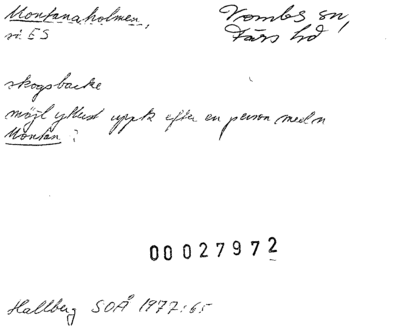 Montanaholmen,
Vombs sn,
Färs hd
v. ES
skogsbacke
möjl uppk efter en person med n
Montan?
00027972
Hallberg SOÅ 1977:65